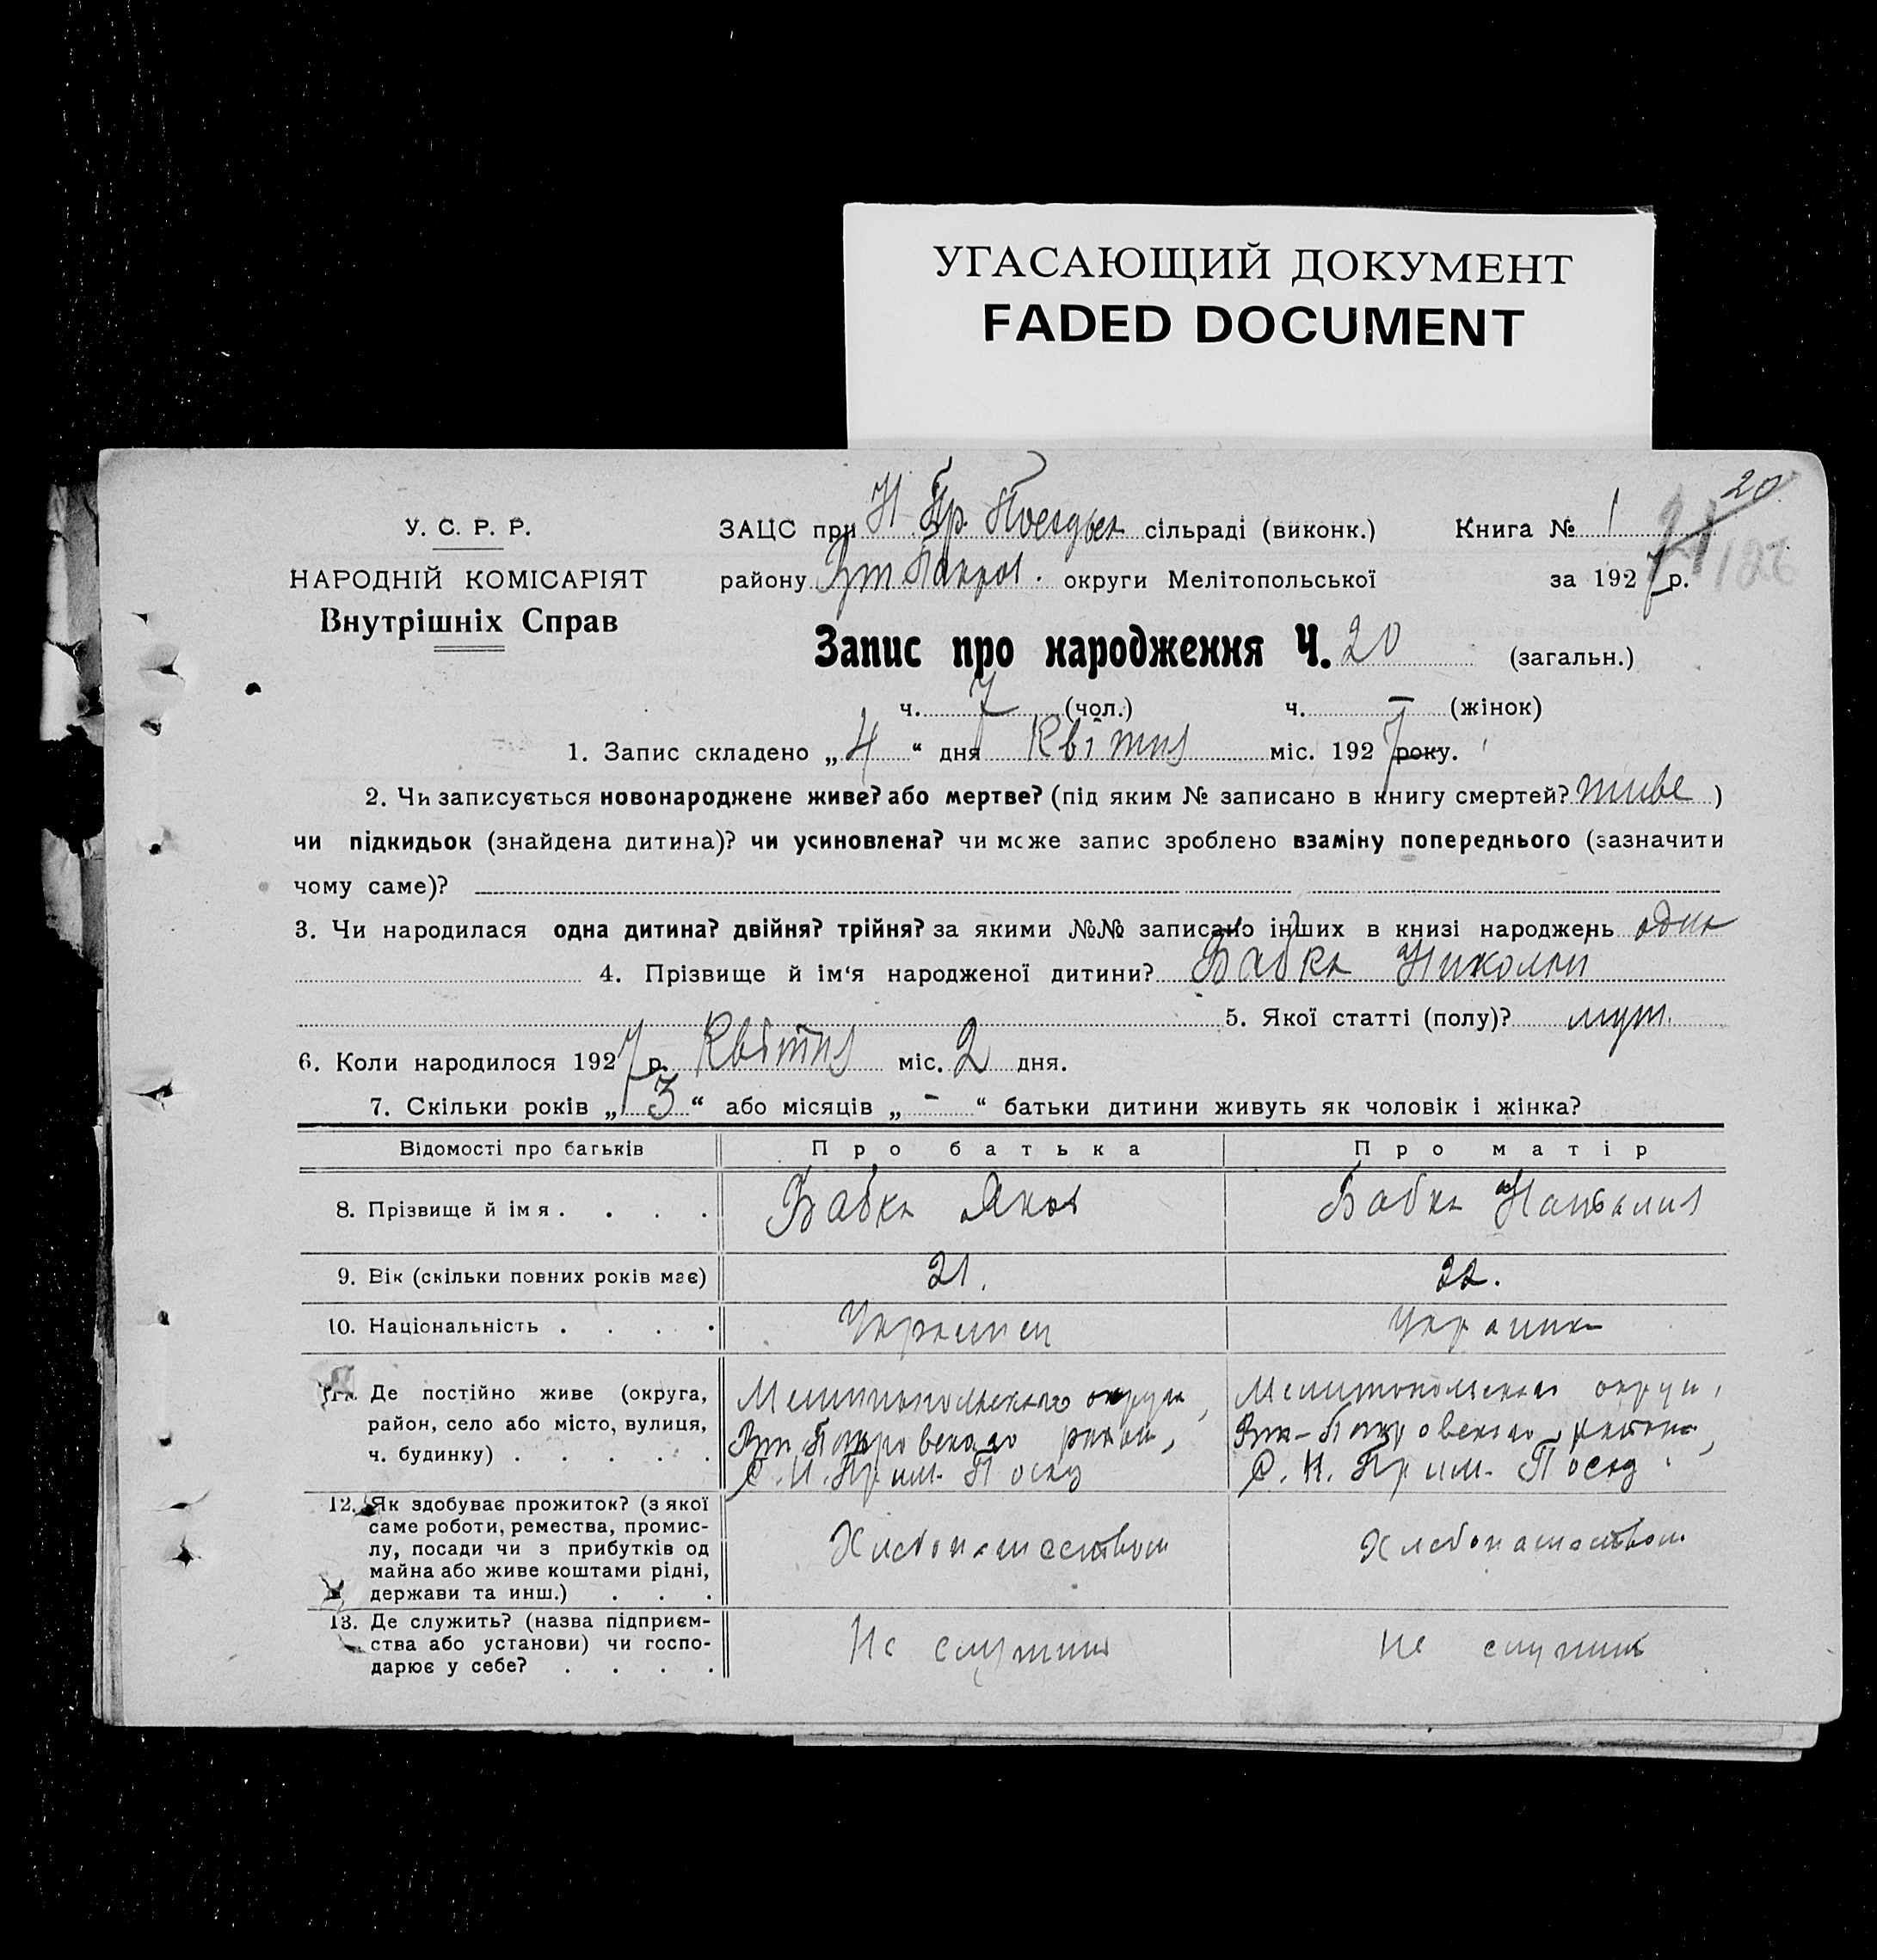 УГАСАЮЩИЙ ДОКУМЕНТ
FADED DOCUMENT
20
21
У. С. Р. Р.
ЗАЦС при Н Пр. Посадьск сільраді (виконк.) Книга № 1
НАРОДНІЙ КОМІСАРІЯТ
району Вт. Покров. округи Мелітопольської за 1927 р.
Внутрішніх Справ
Запис про народження Ч. 20 (загальн.)
ч. 7 (чол.) ч. – (жінок)
1. Запис складено „4“ дня Квітня міс. 1927 року.
2. Чи записується новонароджене живе? або мертве? (під яким № записано в книгу смертей? живе )
чи підкидьок (знайдена дитина)? чи усиновлена? чи може запис зроблено взаміну попереднього (зазначити
чому саме)?
3. Чи народилася одна дитина? двійня? трійня? за якими №№ записано інших в книзі народжень одна
4. Прізвище й ім‘я народженої дитини? Бабка Николай
5. Якої статті (полу)? муж.
6. Коли народилося 1927 р. Квітня міс. 2 дня.
7. Скільки років „3“ або місяців „-“ батьки дитини живуть як чоловік і жінка?
Відомості про батьків Про батька Про матір
8. Прізвище й імя . . . . Бабка Яков Бабка Наталия
9. Вік (скільки повних років має) 21. 22.
10. Національність . . . . Украинец Украинка
11. Де постійно живе (округа, Мелитопольского округа, Мелитопольского округа,
район, село або місто, вулиця, Вт. Покровского района, Вт-Покровского района,
ч. будинку) . . . . . С. Н. Прим. Посад С. Н. Прим. Посад.
12. Як здобуває прожиток? (з якої
саме роботи, ремества, промис-
лу, посади чи з прибутків од Хлебопашеством Хлебопашеством
майна або живе коштами рідні,
держави та инш.) . . .
13. Де служить? (назва підприєм-
ства або установи) чи госпо- Не служит Не служит
дарює у себе? . . . .